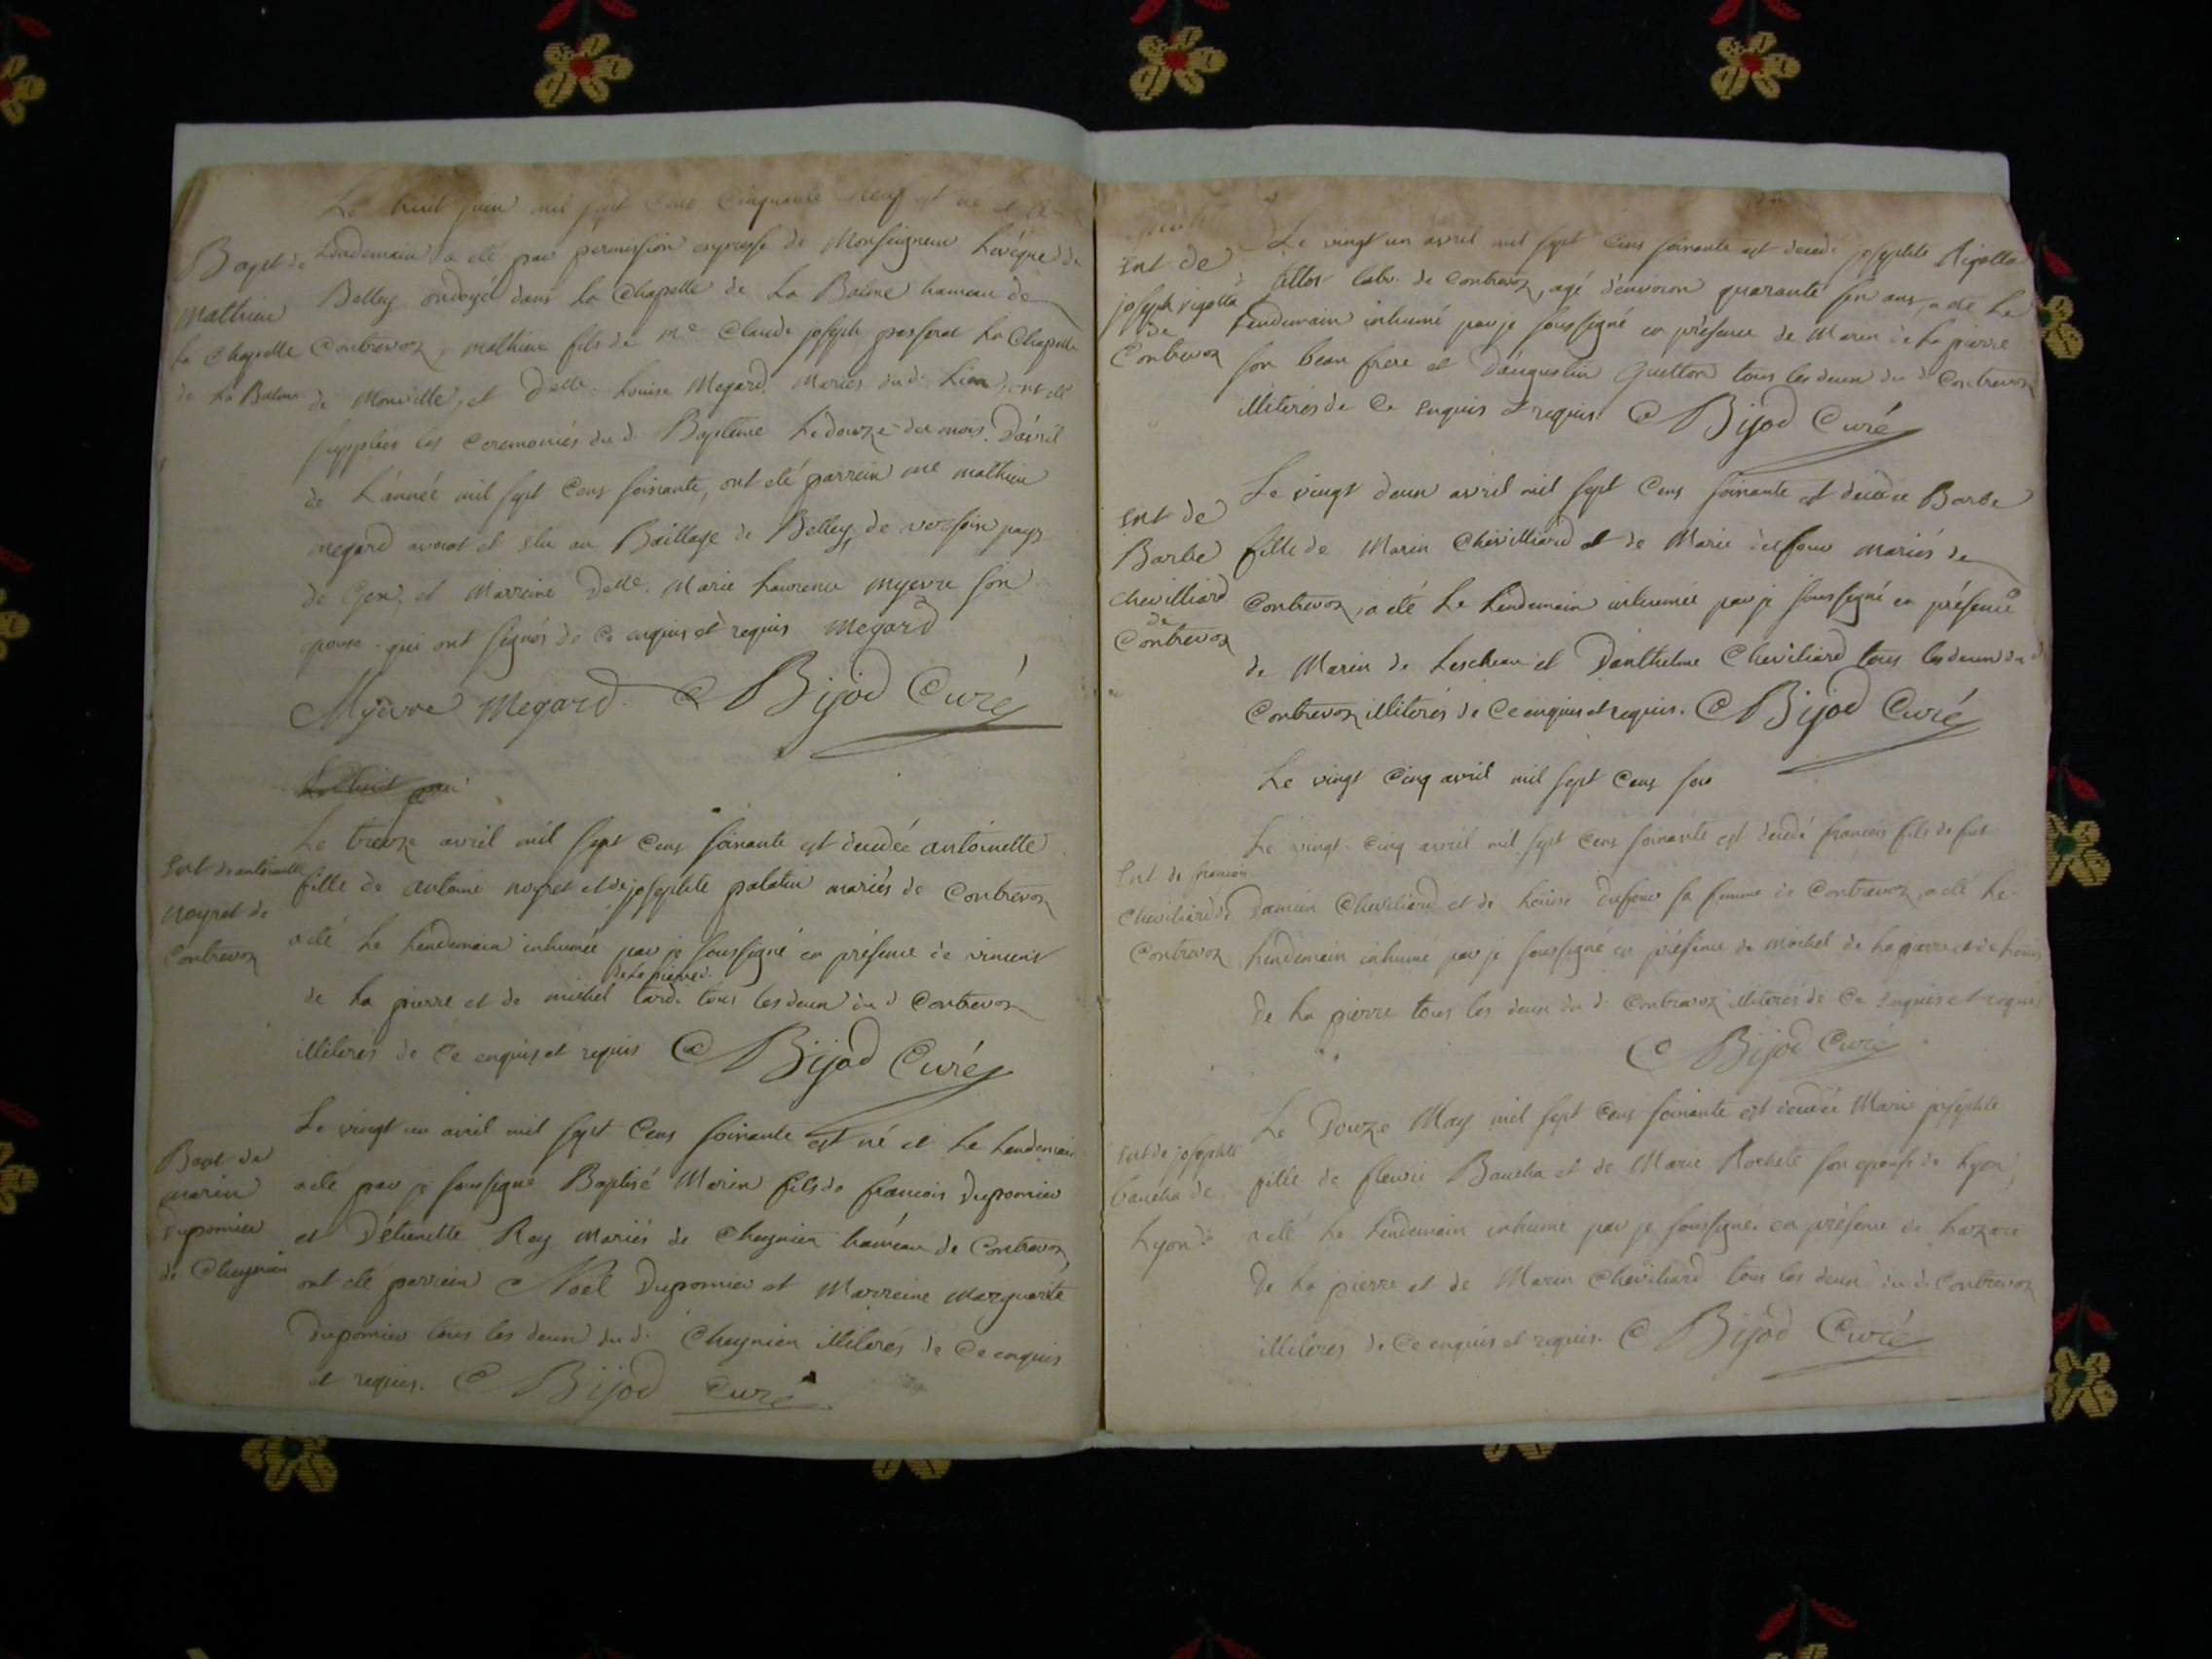 Le huit juin mil sept cent cinquante neuf est né et le
Bapt de
mathieu
la Chapelle
de la Balme
Lendemain a eté par permission expresse de Monseigneur Levêque de
Belley ondoyé dans la Chapelle de La Balme hameau de
Contrevoz, mathieu fils de me Claude joseph passerat La Chapelle
de Monville, et Delle. Louise Megard. Mariés du d. Lieu, ont eté
supplées les ceremonies du d. Baptême Le douze du mois. D'avril
de L'année mil sept Cens soixante, ont eté parrein me mathieu
megard avocat et Elu au Baillage de Belley, de versoix pays
de Gex, et Marreine Delle. Marie Laurence myevre son
epouse qui ont signés de Ce enquis et requis megard
Myevre megard. C Bijod Curé
Le huit juin
Ent d'antoinette
noyret de
Contrevoz
Le treize avril mil sept Cens soixante est decedée antoinette
fille de antoine noyret et de josephte palatin mariés de Contrevoz
a eté Le Lendemain inhumée par je soussigné en présence de vincent
de La pierre
de La pierre et de michel tardi tous les deux du d Contrevoz
illiterés de Ce enquis et requis C Bijod Curé
Bapt de
marin
Dupomier
de Cheignieu
Le vingt un avril mil sept Cens soixante est né et Le Lendemain
a eté par je soussigné Baptisé Marin fils de francois Dupomier
et D'etienette Rey Mariés de Cheignieu hameau de Contrevoz,
ont eté parrein Noël Dupomier et Marreine Marguerite
Dupomier tous les deux du d. Cheignieu illiterés de Ce enquis
et requis. C Bijod Curé
Ent de
joseph rigolla
de
Contrevoz
Le vingt un avril mil sept Cens soixante est decedé josephte Rigolla
labr. de Contrevoz, agé d'environ quarante six ans, a eté Le
Lendemain inhumé par je soussigné en présence de Marin de La pierre
son beau frere et D'augustin Guetton tous les deux du d Contrevoz
illiterés de Ce Enquis et requis. C Bijod Curé
Ent de
Barbe
Chevilliard
de
Contrevoz
Le vingt deux avril mil sept Cens soixante est decedée Barbe
fille de Marin Chevilliard et de Marie dufour mariés de
Contrevoz, a eté Le Lendemain inhumée par je soussigné en présence
de Marin de Lescheau et D'anthelme Cheviliard tous les deux du d
Contrevoz illiterés de Ce enquis et requis. C Bijod Curé
Le vingt Cinq avril mil sept Cens soix
Ent de francois
Cheviliard de
Contrevoz
Le vingt-Cinq avril mil sept Cens soixante est decedé francois fils de fut
Damien Cheviliard et de Louise Dufour sa femme de Contrevoz, a eté Le
Lendemain inhumé par je soussigné en présence de michel de La pierre et de Louis
De La pierre tous les deux du d. Contrevoz illiterés de Ce Enquis et requis
C Bijod Curé
Ent de josephte
baucha de
Lyon
Le Douze May mil sept Cens soixante est decedée Marie josephte
fille de fleurie Baucha et de Marie Rochete son epouse de Lyon,
a eté Le Lendemain inhumé par je soussigné. en présence de Lazare
De La pierre et de Marin Cheviliard tous les deux du d. Contrevoz
illiterés de Ce enquis et requis. C Bijod Curé